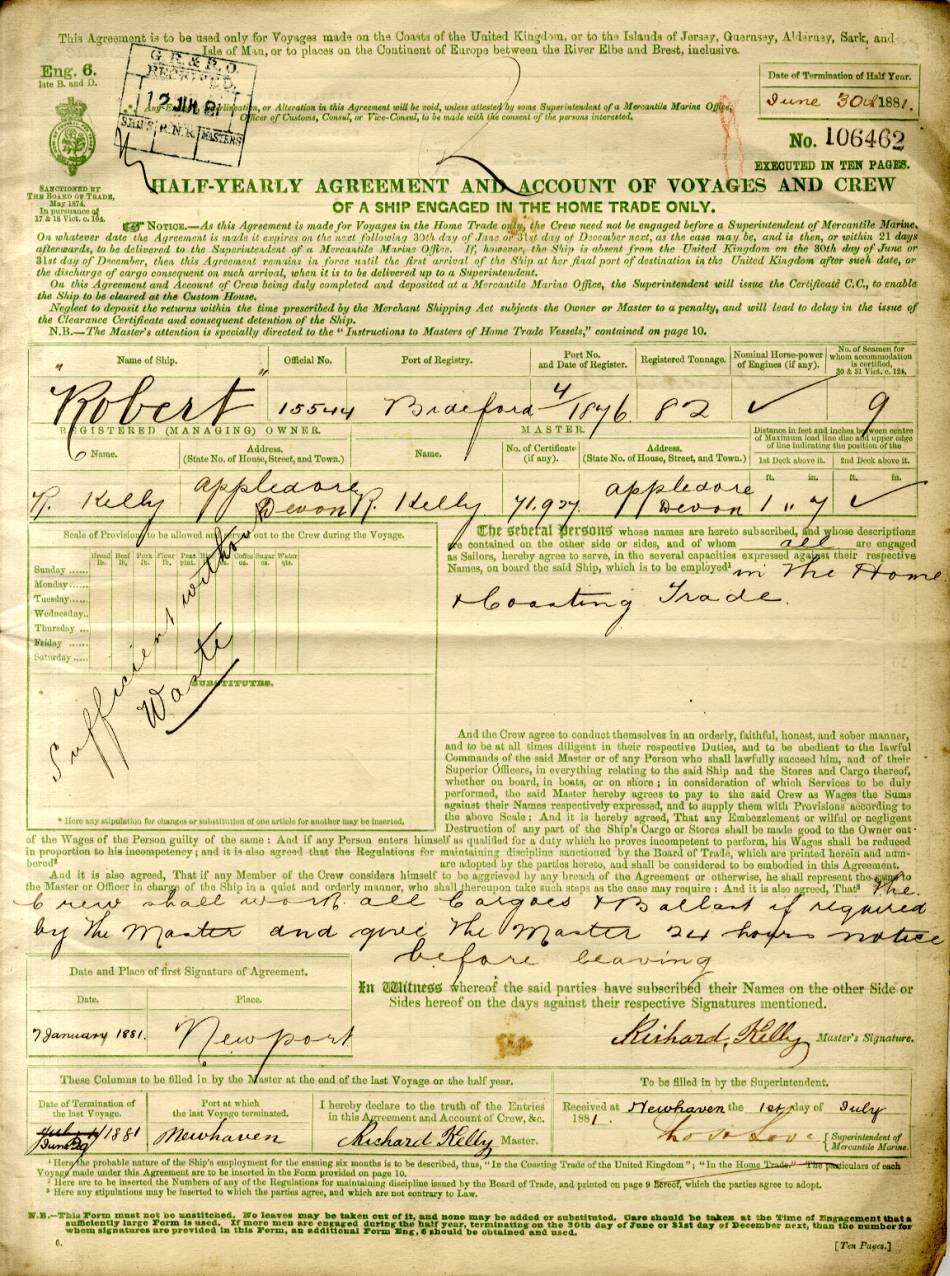 This Agreement is to be used only for Voyages made on the Coasts of the United Kingdom, or to the Islands of Jersey, Guernsey, Alderney, Sark, and
Isle of Man, or to places on the Continent of Europe between the River Elbe and Brest, inclusive.
Eng. 6.
late B. and D.
G. R. & R. O.
RECEIVED
12 JUL 81
SHIPS R.N.R. MASTERS
Date of Termination of Half Year.
June 30th 1881.
Alteration in this Agreement will be void, unless attested by some Superintendent of a Mercantile Marine Office,
Officer of Customs, Consul, or Vice-Consul, to be made with the consent of the persons interested.
No. 106462
EXECUTED IN TEN PAGES.
SANCTIONED BY
THE BOARD OF TRADE,
May 1874.
In pursuance of
17 & 18 Vict. c. 104.
HALF-YEARLY AGREEMENT AND ACCOUNT OF VOYAGES AND CREW
OF A SHIP ENGAGED IN THE HOME TRADE ONLY.
NOTICE.—As this Agreement is made for Voyages in the Home Trade only, the Crew need not be engaged before a Superintendent of Mercantile Marine.
On whatever date the Agreement is made it expires on the next following 30th day of June or 31st day of December next, as the case may be, and is then, or within 21 days
afterwards, to be delivered to the Superintendent of a Mercantile Marine Office. If, however, the Ship is absent from the United Kingdom on the 30th day of June or
31st day of December, then this Agreement remains in force until the first arrival of the Ship at her final port of destination in the United Kingdom after such date, or
the discharge of cargo consequent on such arrival, when it is to be delivered up to a Superintendent.
On this Agreement and Account of Crew being duly completed and deposited at a Mercantile Marine Office, the Superintendent will issue the Certificate C.C., to enable
the Ship to be cleared at the Custom House.
Neglect to deposit the returns within the time prescribed by the Merchant Shipping Act subjects the Owner or Master to a penalty, and will lead to delay in the issue of
the Clearance Certificate and consequent detention of the Ship.
N.B.—The Master's attention is specially directed to the "Instructions to Masters of Home Trade Vessels," contained on page 10.
Name of Ship. Official No. Port of Registry. Port No. and Date of Register. Registered Tonnage. Nominal Horse-power of Engines (if any). No. of Seamen for whom accommodation is certified, 30 & 31 Vict. c. 124.
"Robert" 15544 Bideford 4/1876 82 ✓ 9
REGISTERED (MANAGING) OWNER. MASTER. Distance in feet and inches between centre of Maximum load line disc and upper edge of line indicating the position of the
Name. Address. (State No. of House, Street, and Town.) Name. No. of Certificate (if any). Address. (State No. of House, Street, and Town.) 1st Deck above it. 2nd Deck above it.
ft. in. ft. in.
R. Kelly Appledore Devon R. Kelly 71.927 Appledore Devon 1 " 7 ✓
Scale of Provisions to be allowed and served out to the Crew during the Voyage.
Bread lb. Beef lb. Pork lb. Flour lb. Peas pint. Coffee oz. Sugar oz. Water qts.
Sunday
Monday
Tuesday
Wednesday
Thursday
Friday
Saturday
Sufficient without
Waste
SUBSTITUTES.
* Here any stipulation for changes or substitution of one article for another may be inserted.
The several Persons whose names are hereto subscribed, and whose descriptions
are contained on the other side or sides, and of whom all are engaged
as Sailors, hereby agree to serve, in the several capacities expressed against their respective
Names, on board the said Ship, which is to be employed¹ in the Home
& Coasting Trade.
And the Crew agree to conduct themselves in an orderly, faithful, honest, and sober manner,
and to be at all times diligent in their respective Duties, and to be obedient to the lawful
Commands of the said Master or of any Person who shall lawfully succeed him, and of their
Superior Officers, in everything relating to the said Ship and the Stores and Cargo thereof,
whether on board, in boats, or on shore; in consideration of which Services to be duly
performed, the said Master hereby agrees to pay to the said Crew as Wages the Sums
against their Names respectively expressed, and to supply them with Provisions according to
the above Scale: And it is hereby agreed, That any Embezzlement or wilful or negligent
Destruction of any part of the Ship's Cargo or Stores shall be made good to the Owner out
of the Wages of the Person guilty of the same: And if any Person enters himself as qualified for a duty which he proves incompetent to perform, his Wages shall be reduced
in proportion to his incompetency; and it is also agreed that the Regulations for maintaining discipline sanctioned by the Board of Trade, which are printed herein and num-
bered² are adopted by the parties hereto, and shall be considered to be embodied in this Agreement.
And it is also agreed, That if any Member of the Crew considers himself to be aggrieved by any breach of the Agreement or otherwise, he shall represent the same to
the Master or Officer in charge of the Ship in a quiet and orderly manner, who shall thereupon take such steps as the case may require: And it is also agreed, That³ the
Crew shall work all Cargoes & Ballast if required
by the Master and give the Master 24 hours notice
before leaving
Date and Place of first Signature of Agreement.
Date. Place.
7 January 1881. Newport
In Witness whereof the said parties have subscribed their Names on the other Side or
Sides hereof on the days against their respective Signatures mentioned.
Richard Kelly Master's Signature.
These Columns to be filled in by the Master at the end of the last Voyage or the half year.
Date of Termination of the last Voyage. Port at which the last Voyage terminated. I hereby declare to the truth of the Entries in this Agreement and Account of Crew, &c.
June 29/1881 Newhaven Richard Kelly Master.
To be filled in by the Superintendent.
Received at Newhaven the 1st day of July
1881.
Love Superintendent of Mercantile Marine.
¹ Here the probable nature of the Ship's employment for the ensuing six months is to be described, thus, "In the Coasting Trade of the United Kingdom"; "In the Home Trade." The particulars of each
Voyage made under this Agreement are to be inserted in the Form provided on page 10.
² Here are to be inserted the Numbers of any of the Regulations for maintaining discipline issued by the Board of Trade, and printed on page 9 hereof, which the parties agree to adopt.
³ Here any stipulations may be inserted to which the parties agree, and which are not contrary to Law.
N.B.—This Form must not be unstitched. No leaves may be taken out of it, and none may be added or substituted. Care should be taken at the Time of Engagement that a
sufficiently large Form is used. If more men are engaged during the half year, terminating on the 30th day of June or 31st day of December next, than the number for
whom signatures are provided in this Form, an additional Form Eng. 6 should be obtained and used.
6.
[Ten Pages.]